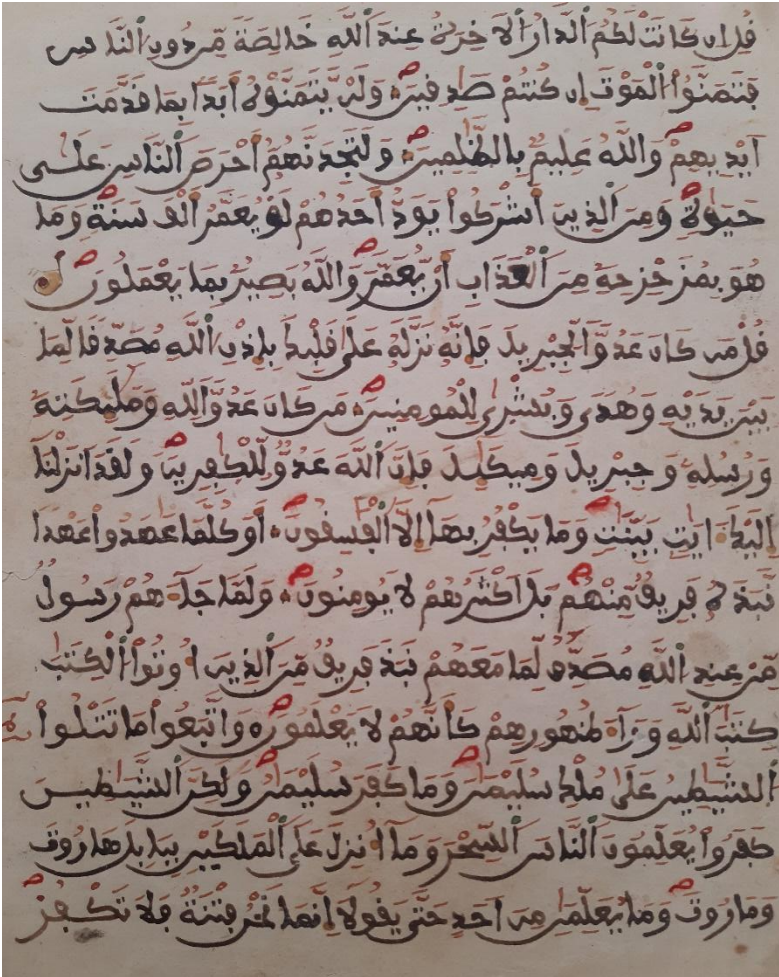 قُلِ ان كَانَتْ لَكُمُ اُ۬لدَّارُ اُ۬لَاخِرَةُ عِندَ اَ۬للَّهِ خَالِصَةٗ مِّن دُونِ اِ۬لنَّاسِ
فَتَمَنَّوُاْ اُ۬لْمَوْتَ إِن كُنتُمْ صَٰدِقِينَ وَلَنْ يَّتَمَنَّوْهُ أَبَداَۢ بِمَا قَدَّمَتَ
اَيْدِيهِمْ وَاللَّهُ عَلِيمُۢ بِالظَّٰلِمِينَ وَلَتَجِدَنَّهُمُۥٓ أَحْرَصَ اَ۬لنَّاسِ عَلَىٰ
حَيَوٰةٖ وَمِنَ اَ۬لذِينَ أَشْرَكُواْ يَوَدُّ أَحَدُهُمْ لَوْ يُعَمَّرُ أَلْفَ سَنَةٖ وَمَا
هُوَ بِمُزَحْزِحِهِۦ مِنَ اَ۬لْعَذَابِ أَنْ يُّعَمَّرَ وَاللَّهُ بَصِيرُۢ بِمَا يَعْمَلُونَ
قُلْ مَن كَانَ عَدُوّاٗ لِّجِبْرِيلَ فَإِنَّهُۥ نَزَّلَهُۥ عَلَىٰ قَلْبِكَ بِإِذْنِ اِ۬للَّهِ مُصَدِّقاٗ لِّمَا
بَيْنَ يَدَيْهِ وَهُدىٗ وَبُشْرَىٰ لِلْمُومِنِينَ مَن كَانَ عَدُوّاٗ لِّلهِ وَمَلَٰٓئِكَتِهِۦ
وَرُسُلِهِۦ وَجِبْرِيلَ وَمِيكَٰٓئِلَ فَإِنَّ اَ۬للَّهَ عَدُوّٞ لِّلْكٰ۪فِرِينَ وَلَقَدَ اَنزَلْنَا
إِلَيْكَ ءَايَٰتِۢ بَيِّنَٰتٖ وَمَا يَكْفُرُ بِهَا إِلَّا اَ۬لْفَٰسِقُونَ أَوَكُلَّمَا عَٰهَدُواْ عَهْداٗ
نَّبَذَهُۥ فَرِيقٞ مِّنْهُم بَلَ اَكْثَرُهُمْ لَا يُومِنُونَ وَلَمَّا جَآءَهُمْ رَسُولٞ
مِّنْ عِندِ اِ۬للَّهِ مُصَدِّقٞ لِّمَا مَعَهُمْ نَبَذَ فَرِيقٞ مِّنَ اَ۬لذِينَ أُوتُواْ اُ۬لْكِتَٰبَ
كِتَٰبَ اَ۬للَّهِ وَرَآءَ ظُهُورِهِمْ كَأَنَّهُمْ لَا يَعْلَمُونَ وَاتَّبَعُواْ مَا تَتْلُواْ
اُ۬لشَّيَٰطِينُ عَلَىٰ مُلْكِ سُلَيْمَٰنَ وَمَا كَفَرَ سُلَيْمَٰنُ وَلَٰكِنَّ اَ۬لشَّيَٰطِينَ
كَفَرُواْ يُعَلِّمُونَ اَ۬لنَّاسَ اَ۬لسِّحْرَ وَمَآ أُنزِلَ عَلَى اَ۬لْمَلَكَيْنِ بِبَابِلَ هَٰرُوتَ
وَمَٰرُوتَ وَمَا يُعَلِّمَٰنِ مِنَ اَحَدٍ حَتَّىٰ يَقُولَا إِنَّمَا نَحْنُ فِتْنَةٞ فَلَا تَكْفُرْ